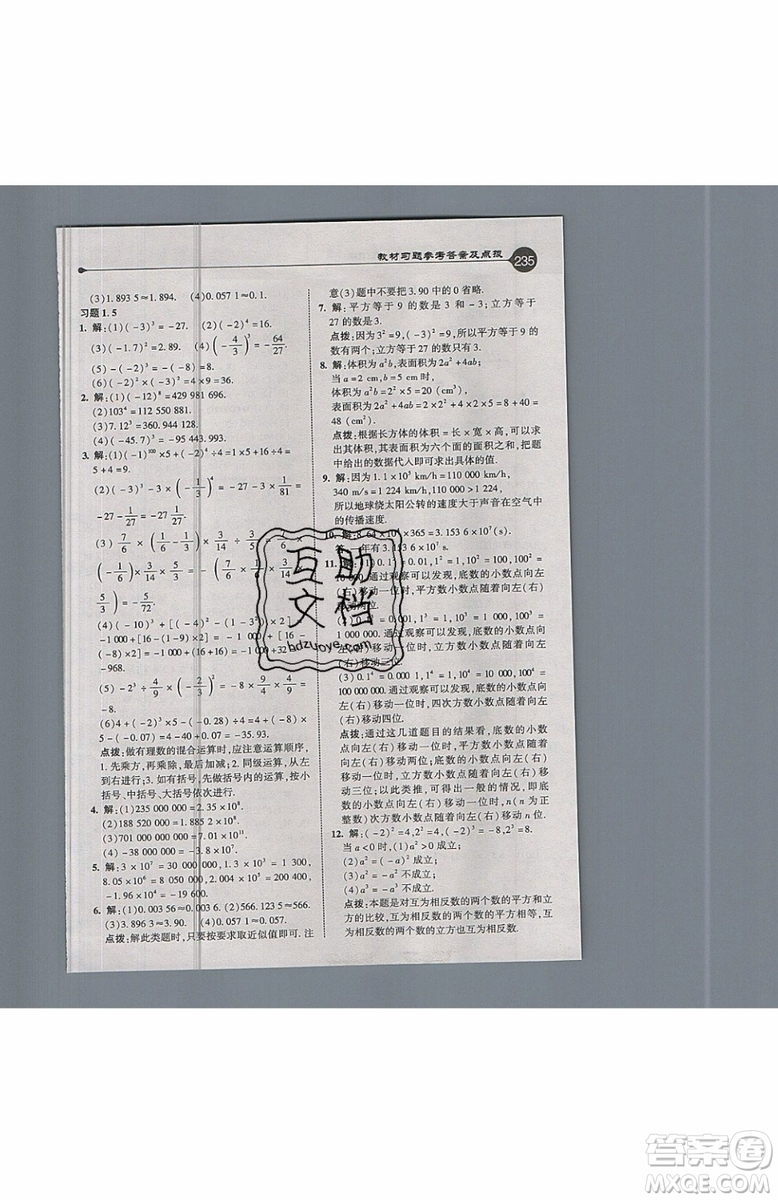 教材习题参考答案及点拨
235
(3)1.893 5≈1.894. (4)0.057 1≈0.057.
习题1.5
1. 解:(1)(-3)³=-27. (2)(-2)⁴=16.
(3)(-1.7)²=2.89. (4)(-4/3)³=-64/27
(5)-(-2)³=-(-8)=8.
(6)(-2)²×(-3)²=4×9=36.
2. 解:(1)(-12)⁸=429 981 696.
(2)103⁴=112 550 881.
(3)7.12³=360.944 128.
(4)(-45.7)³=-95 443.993.
3. 解:(1)(-1)¹⁰⁰×5+(-2)⁴÷4=1×5+16÷
4=5+4=9.
(2)(-3)³-3×(-1/3)⁴=-27-3×1/81=
-27-1/27=-27 1/27.
(3) 7/6×(1/6-1/3)×3/14÷3/5=7/6×
(-1/6)×3/14÷3/5=7/6×(-1/6)×3/14×
5/3=-5/72.
(4)(-10)³+[(-4)²-(1-3²)×2]=
-1 000+[16-(-8)×2]=-1 000+[16-
(-16)]=-1 000+(16+16)=-1 000+32=
-968.
(5)-2³÷4/9×(-2/3)²=-8×9/4×4/9=
-8.
(6)4+(-2)³×5-(-0.28)÷4=4+(-8)
×5-(-0.07)=4-40+0.07=-35.93.
点拨:做有理数的混合运算时,应注意运算顺序,
1.先乘方,再乘除,最后加减;2.同级运算,从左
到右进行;3.如有括号,先做括号内的运算,按小
括号、中括号、大括号依次进行.
4. 解:(1)235 000 000=2.35×10⁸.
(2)188 520 000=1.885 2×10⁸.
(3)701 000 000 000=7.01×10¹¹.
(4)-38 000 000=-3.8×10⁷.
5. 解:3×10⁷=30 000 000,1.3×10³=1 300,
8.05×10⁶=8 050 000,2.004×10⁵=200 400,
-1.96×10⁴=-19 600.
6. 解:(1)0.003 56≈0.003 6. (2)566.123 5≈566.
(3)3.896 3≈3.90. (4)0.057 1≈0.057.
点拨:解此类题时,只要按要求取近似值即可.注
意(3)题中不要把3.90中的0省略.
7. 解:平方等于9的数是3和-3;立方等于
27的数是3.
点拨:因为3²=9,(-3)²=9,所以平方等于9的
数有两个;立方等于27的数只有3.
8. 解:体积为a²b,表面积为2a²+4ab;
当a=2 cm,b=5 cm时,
体积a²b=2²×5=20(cm³),
表面积2a²+4ab=2×2²+4×2×5=8+40=
48(cm²).
点拨:根据长方体的体积=长×宽×高,可以求
出其体积,其表面积为六个面的面积之和,把题
中给出的数据代入即可求出具体的值.
9. 解:因为1.1×10⁵ km/h=110 000 km/h,
340 m/s=1 224 km/h,110 000>1 224,
所以地球绕太阳公转的速度大于声音在空气中
的传播速度.
10. 解:8.64×10⁴×365=3.153 6×10⁷(s).
年有3.153 6×10⁷ s.
11. 0.1²=0.01,1²=1,10²=100,100²=
10 000.通过观察可以发现,底数的小数点向左
(右)移动一位时,平方数小数点向左(右)
移动两位.
0.1³=0.001,1³=1,10³=1 000,100³=
1 000 000.通过观察可以发现,底数的小数点向
左(右)移动一位时,立方数小数点向左
(右)移动三位.
(3)0.1⁴=0.000 1,1⁴=1,10⁴=10 000,100⁴=
100 000 000.通过观察可以发现,底数的小数点向
左(右)移动一位时,四次方数小数点向左
(右)移动四位.
点拨:通过这几道题目的结果看,底数的小数点
向左(右)移动一位时,平方数小数点随着向左
(右)移动两位,立方数小数点随着向左(右)移
动三位,以此类推,可得出一般的情况,即底数
的小数点向左(右)移动一位时,n(n为正整数)
次方数小数点随着向左(右)移动n位.
12. 解:(-2)²=4,2²=4,(-2)³=-8,2³=8.
当a<0时,(1)a²>0成立;
(2)a²=(-a)²成立;
(3)a²=-a²不成立;
(4)a³=-a³不成立.
点拨:本题是对互为相反数的两个数的平方和立
方的比较,互为相反数的两个数的平方相等,互
为相反数的两个数的立方也互为相反数.
互助
文档
bdzuoye.com
答案圈
MXQE.COM